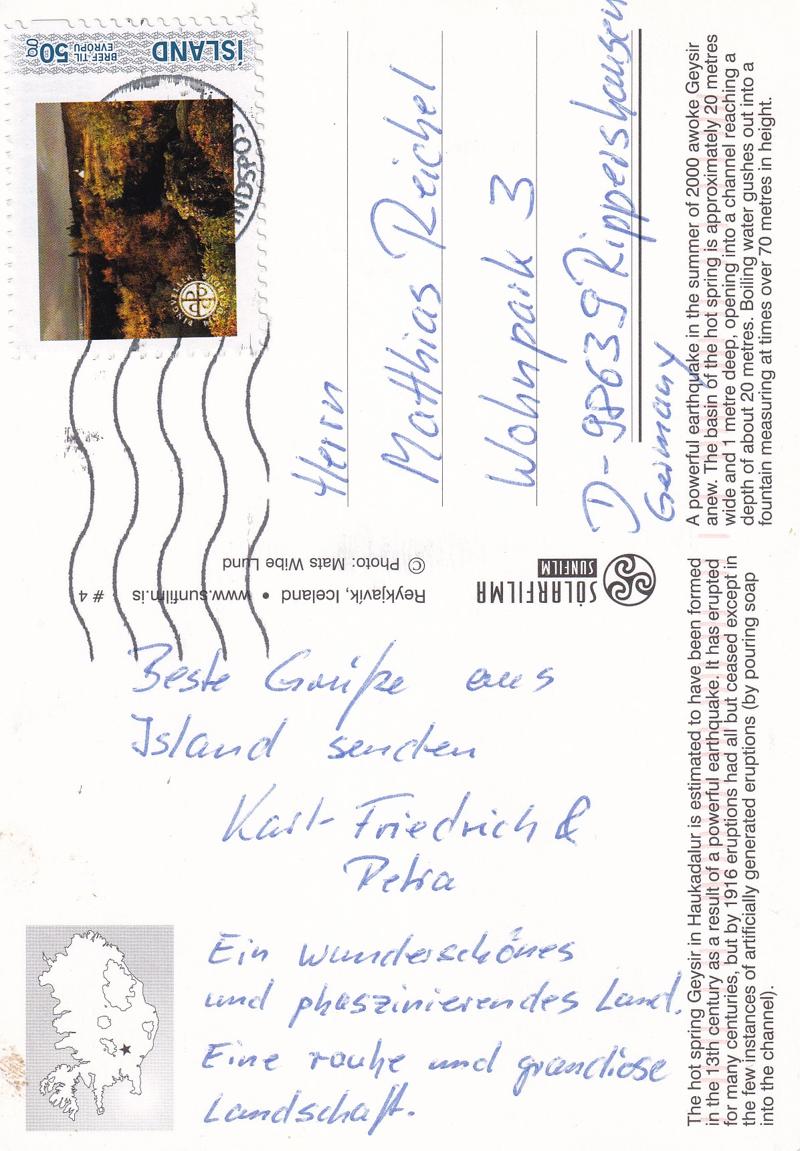 ÍSLAND
BRÉF TIL
EVRÓPU
50g
NDSPOS
Herrn
Matthias Reichel
Wohnpark 3
D-98639 Rippershausen
Germany
SÓLARFILMA
SUNFILM
Reykjavík, Iceland • www.sunfilm.is # 4
© Photo: Mats Wibe Lund
Beste Grüße aus
Island senden
Karl-Friedrich &
Petra
Ein wunderschönes
und phaszinierendes Land.
Eine rauhe und grandiose
Landschaft.
The hot spring Geysir in Haukadalur is estimated to have been formed
in the 13th century as a result of a powerful earthquake. It has erupted
for many centuries, but by 1916 eruptions had all but ceased except in
the few instances of artificially generated eruptions (by pouring soap
into the channel).
A powerful earthquake in the summer of 2000 awoke Geysir
anew. The basin of the hot spring is approximately 20 metres
wide and 1 metre deep, opening into a channel reaching a
depth of about 20 metres. Boiling water gushes out into a
fountain measuring at times over 70 metres in height.